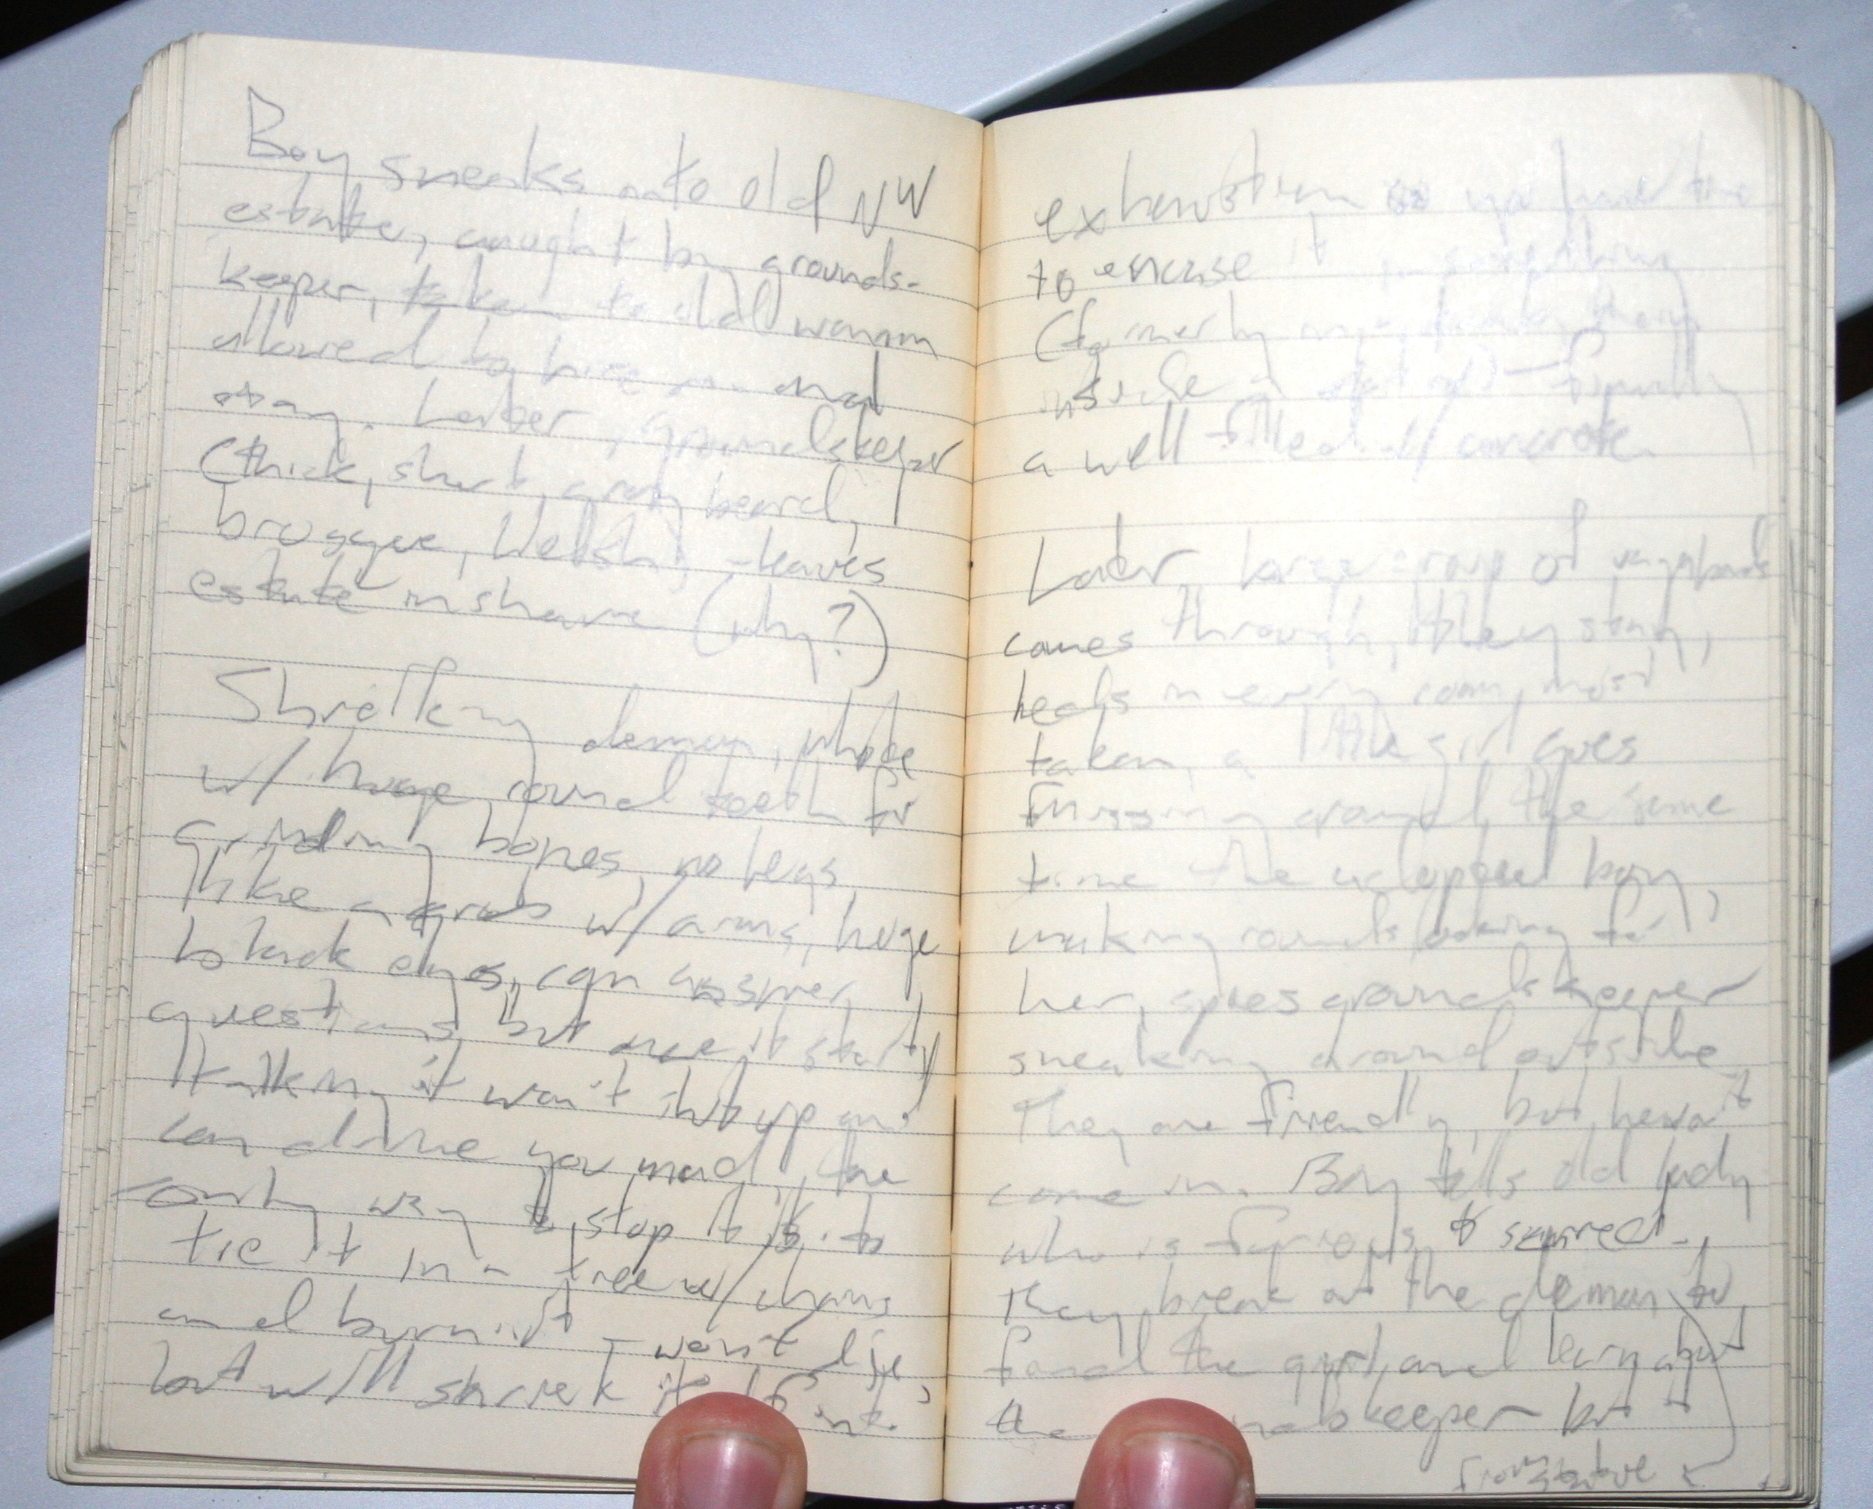 Boy sneaks into old NW
estate, caught by grounds-
keeper, taken to old woman
allowed to hire on and
stay. Later, groundskeeper
(thick, short, gray beard,
brogue, Welsh) - leaves
estate in shame (why?)
Shrieking demon, white
w/ huge, round teeth for
grinding bones, no legs,
like a grub w/ arms, huge
black eyes, can answer
questions but once it starts
talking it won't shut up and
can drive you mad, the
only way to stop it is to
tie it in a tree w/ chains
and burn it - won't die,
but will shriek itself into
exhaustion so you have time
to encase it in something
(formerly
inside a
a well filled w/ concrete.
Later, large group of vagabonds
comes through, they stay,
beds in every room, most
taken, a little girl goes
missing around the same
time the
boy,
making rounds looking for
her, spies groundskeeper
sneaking around outside
They are friendly, but he won't
come in. Boy tells old lady
who is furious & scared.
They break out the demon to
find the girl, and learn about
the keeper but
from statue